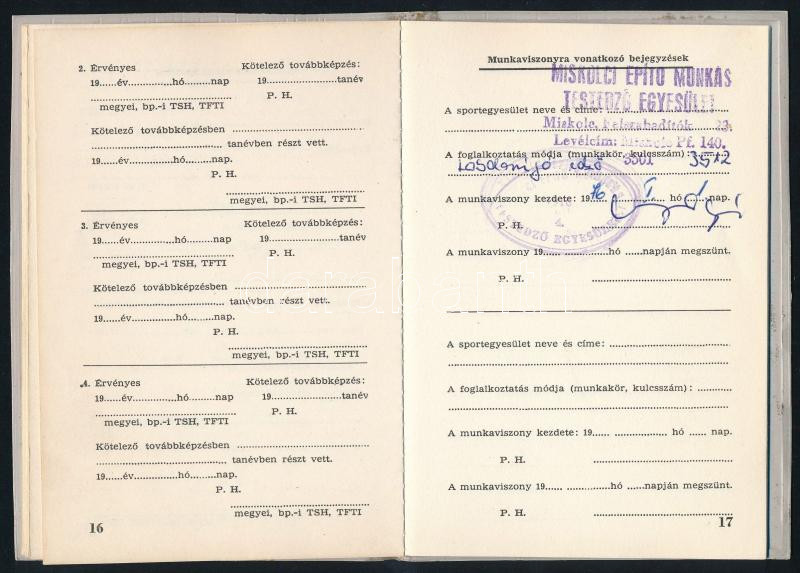 2. Érvényes Kötelező továbbképzés:
19......év............hó........nap 19..................tanév
P. H.
megyei, bp.-i TSH, TFTI
Kötelező továbbképzésben
tanévben részt vett.
19......év............hó........nap.
P. H.
megyei, bp.-i TSH, TFTI
3. Érvényes Kötelező továbbképzés:
19......év............hó........nap 19..................tanév
P. H.
megyei, bp.-i TSH, TFTI
Kötelező továbbképzésben
tanévben részt vett.
19......év............hó........nap.
P. H.
megyei, bp.-i TSH, TFTI
4. Érvényes Kötelező továbbképzés:
19......év............hó........nap 19..................tanév
P. H.
megyei, bp.-i TSH, TFTI
Kötelező továbbképzésben
tanévben részt vett.
19......év............hó........nap.
P. H.
megyei, bp.-i TSH, TFTI
16
Munkaviszonyra vonatkozó bejegyzések
MISKOLCI ÉPÍTŐ MUNKÁS
TESTEDZŐ EGYESÜLET
A sportegyesület neve és címe:
Miskolc, Felszabadítók 23.
Levélcím: Miskolc Pf. 140.
A foglalkoztatás módja (munkakör, kulcsszám):
Labdarúgó edző 3501 3512
A munkaviszony kezdete: 1976 I hó 1 nap.
P. H.
TESTEDZŐ EGYESÜLET
A munkaviszony 19...... hó ......napján megszünt.
P. H.
A sportegyesület neve és címe:
A foglalkoztatás módja (munkakör, kulcsszám):
A munkaviszony kezdete: 19...... hó ...... nap.
P. H.
A munkaviszony 19...... hó ......napján megszünt.
P. H.
17
darabanth